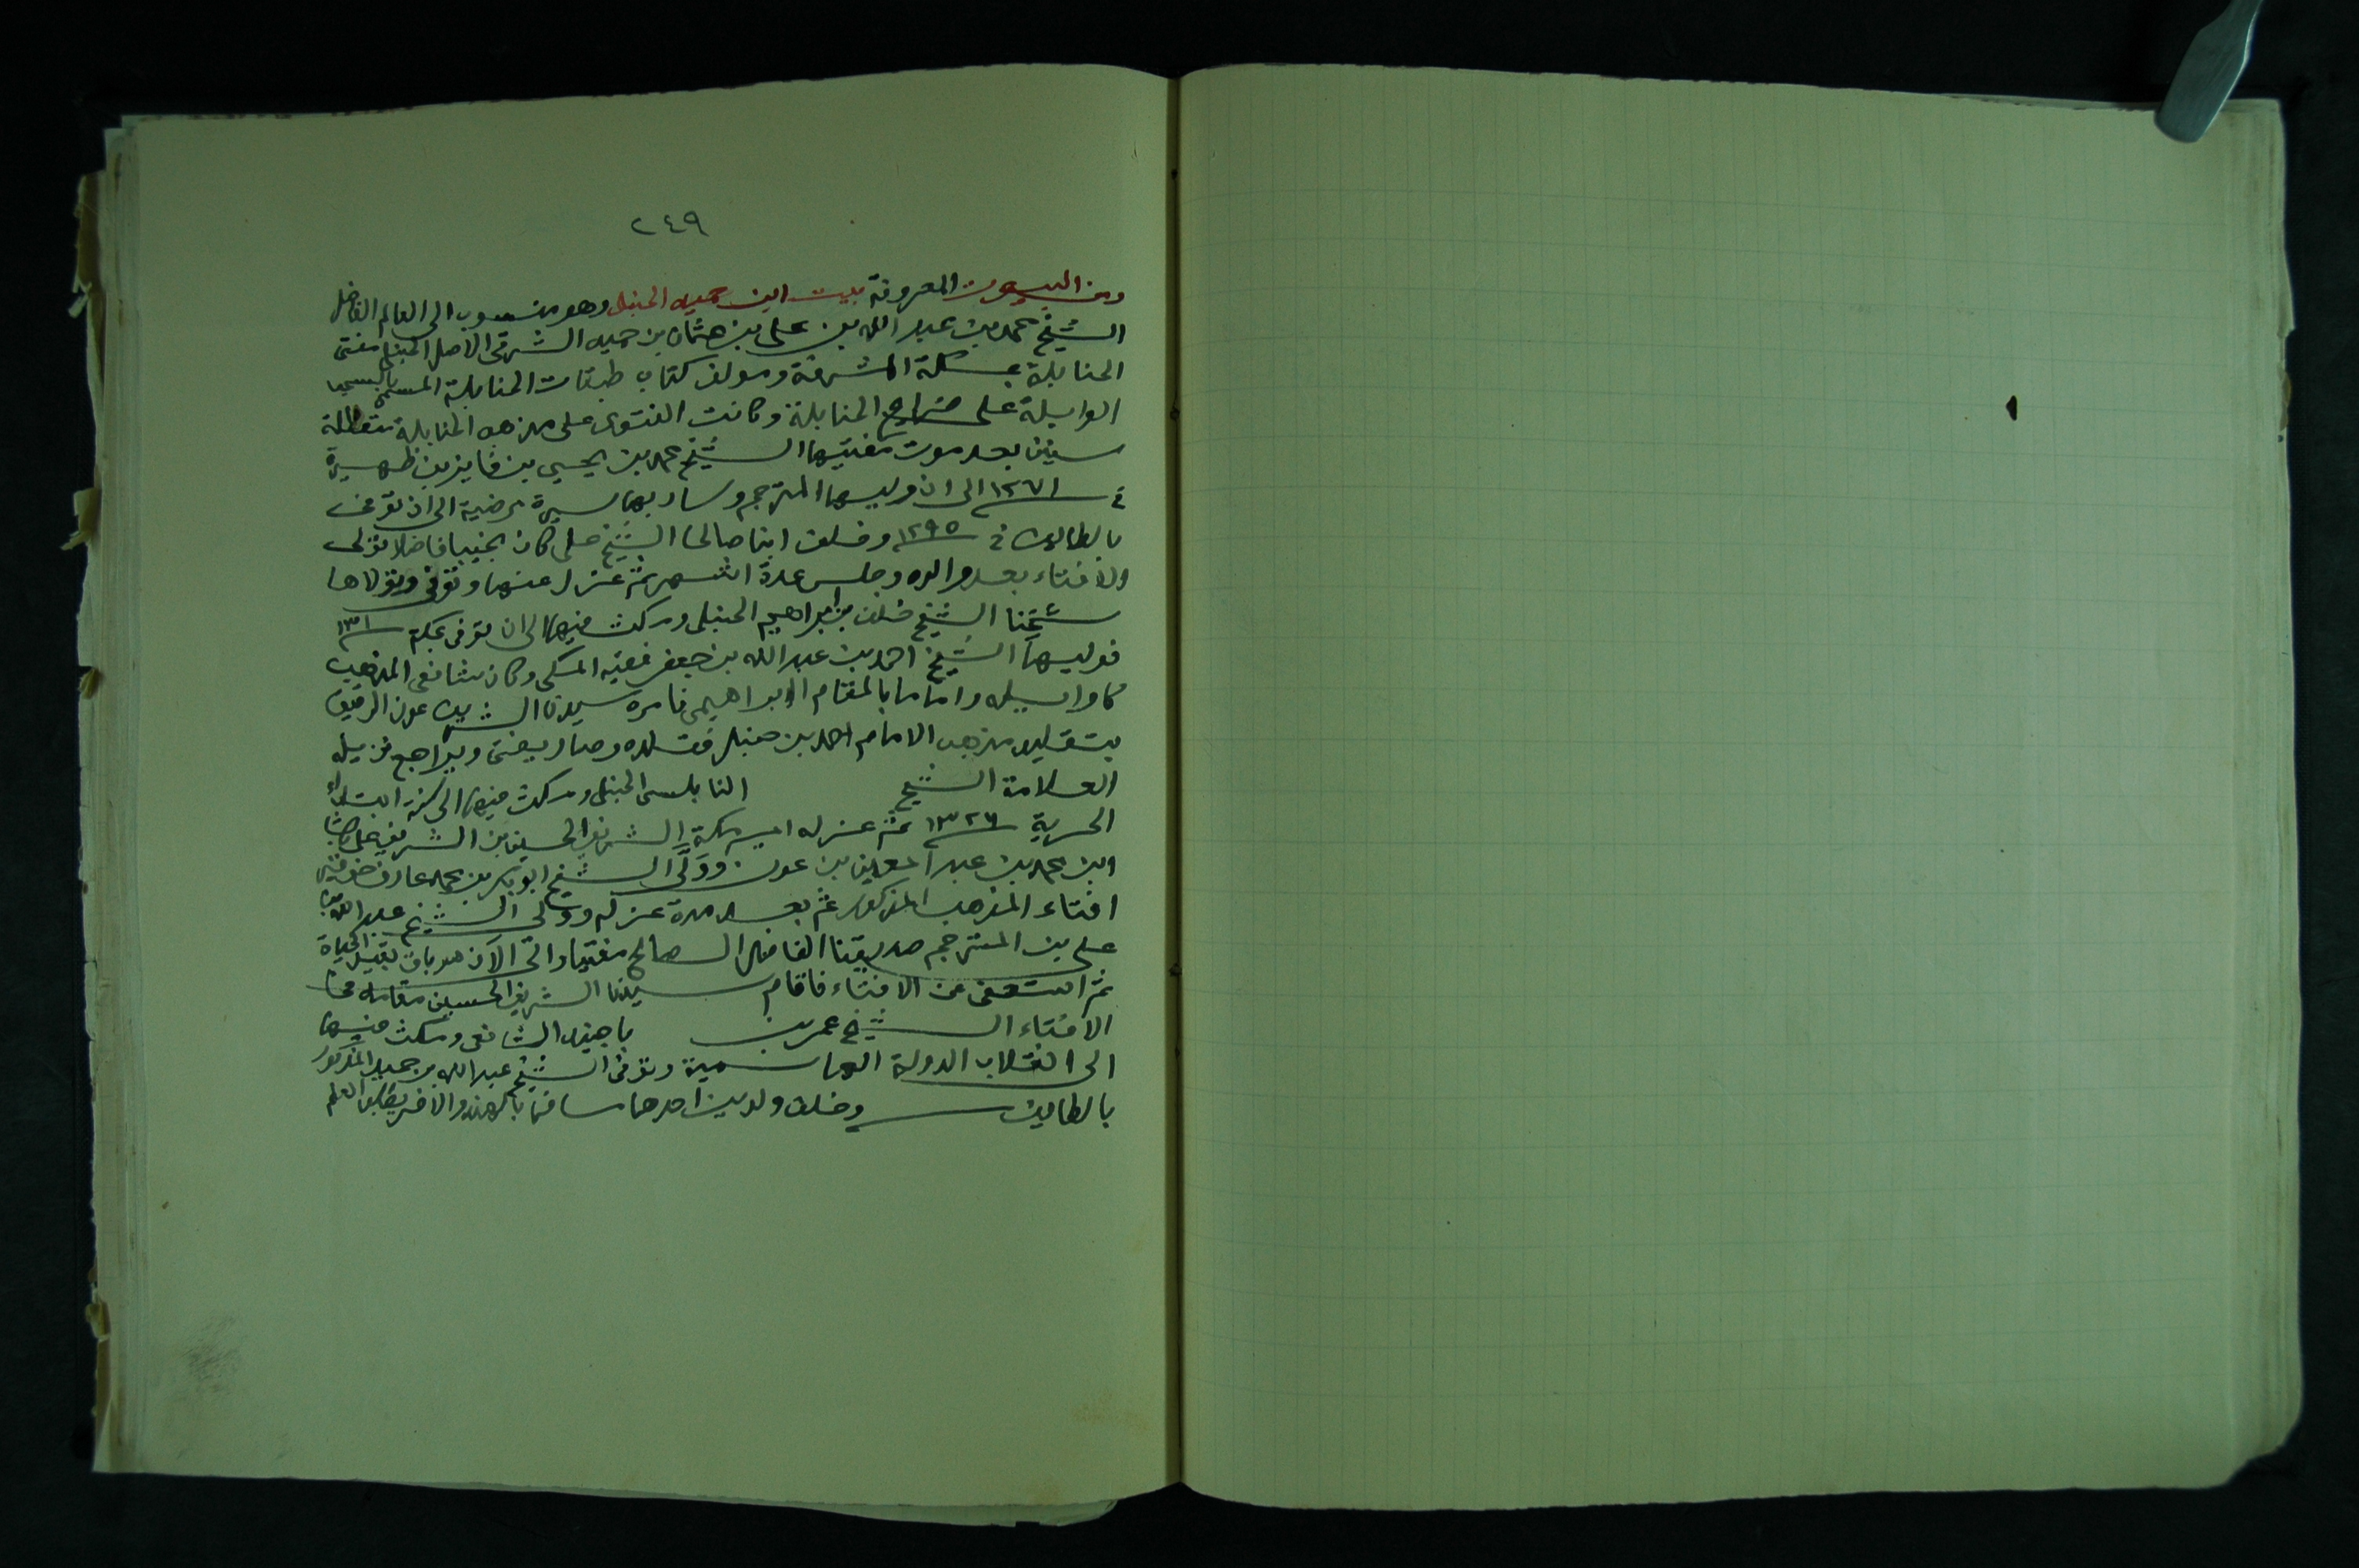 ٢٤٩
ومن البيوت المعروفة ببيت ابن حميد الحنبلي وهو منسوب الى العالم الفاضل
الشيخ محمد بن عبد الله بن علي بن عثمان بن حميد الشرقى الاصل الحنبلي مفتى
الحنابلة بمكة المشرفة ومولف كتاب طبقات الحنابلة المسمى بالسحب
الوابلة على ضرائح الحنابلة وكانت الفتوى على مذهب الحنابلة متعطلة
سنين بعد موت مفتيها الشيخ محمد بن يحيى بن فايز بن ظهيرة
في ١٢٧١ الى ان وليها المترجم وسار بها سيرة مرضية الى ان توفى
بالطائف في ١٢٩٥ وخلف ابنا صالحا الشيخ على كان نجيبا فاضلا تولى
الافتاء بعد والده وجلس عدة اشهر ثم عزل عنها وتوفى وتولاها
شيخنا الشيخ خلف بن ابراهيم الحنبلى ومكث فيها الى ان توفى بمكة
فوليها الشيخ احمد بن عبد الله بن جعفر فقيه المكى وكان شافعى المذهب
كاوايله واماما بالمقام الابراهيمى فامره سيدنا الشريف عون الرفيق
بتقليد مذهب الامام احمد بن حنبل فقلده وصار يفتى ويراجع نزيله
العلامة الشيخ النابلسى الحنبلى ومكث فيها الى سنة ابتداء
الحرية ١٣٢٦ ثم عزله امير مكة الشريف الحسين بن الشريف على باشا
ابن محمد بن عبد المعين بن عون وولّى الشيخ ابو بكر بن محمد عارف خوقير
افتاء المذهب المذكور ثم بعد مدة عزله وولى الشيخ عبد الله بن
على بن المترجم صديقنا الفاضل الصالح مفتيا والى الآن هو باق بقيد الحياة
ثم استعفى عن الافتاء فاقام سيدنا الشريف الحسين مقامه في
الافتاء الشيخ عمر بن باجنيد الشافعى ومكث فيها
الى انقلاب الدولة الهاشمية وتوفى الشيخ عبد الله بن حميد المذكور
بالطائف وخلف ولدين احدهما سافر بالهند والاخر يطلب العلم